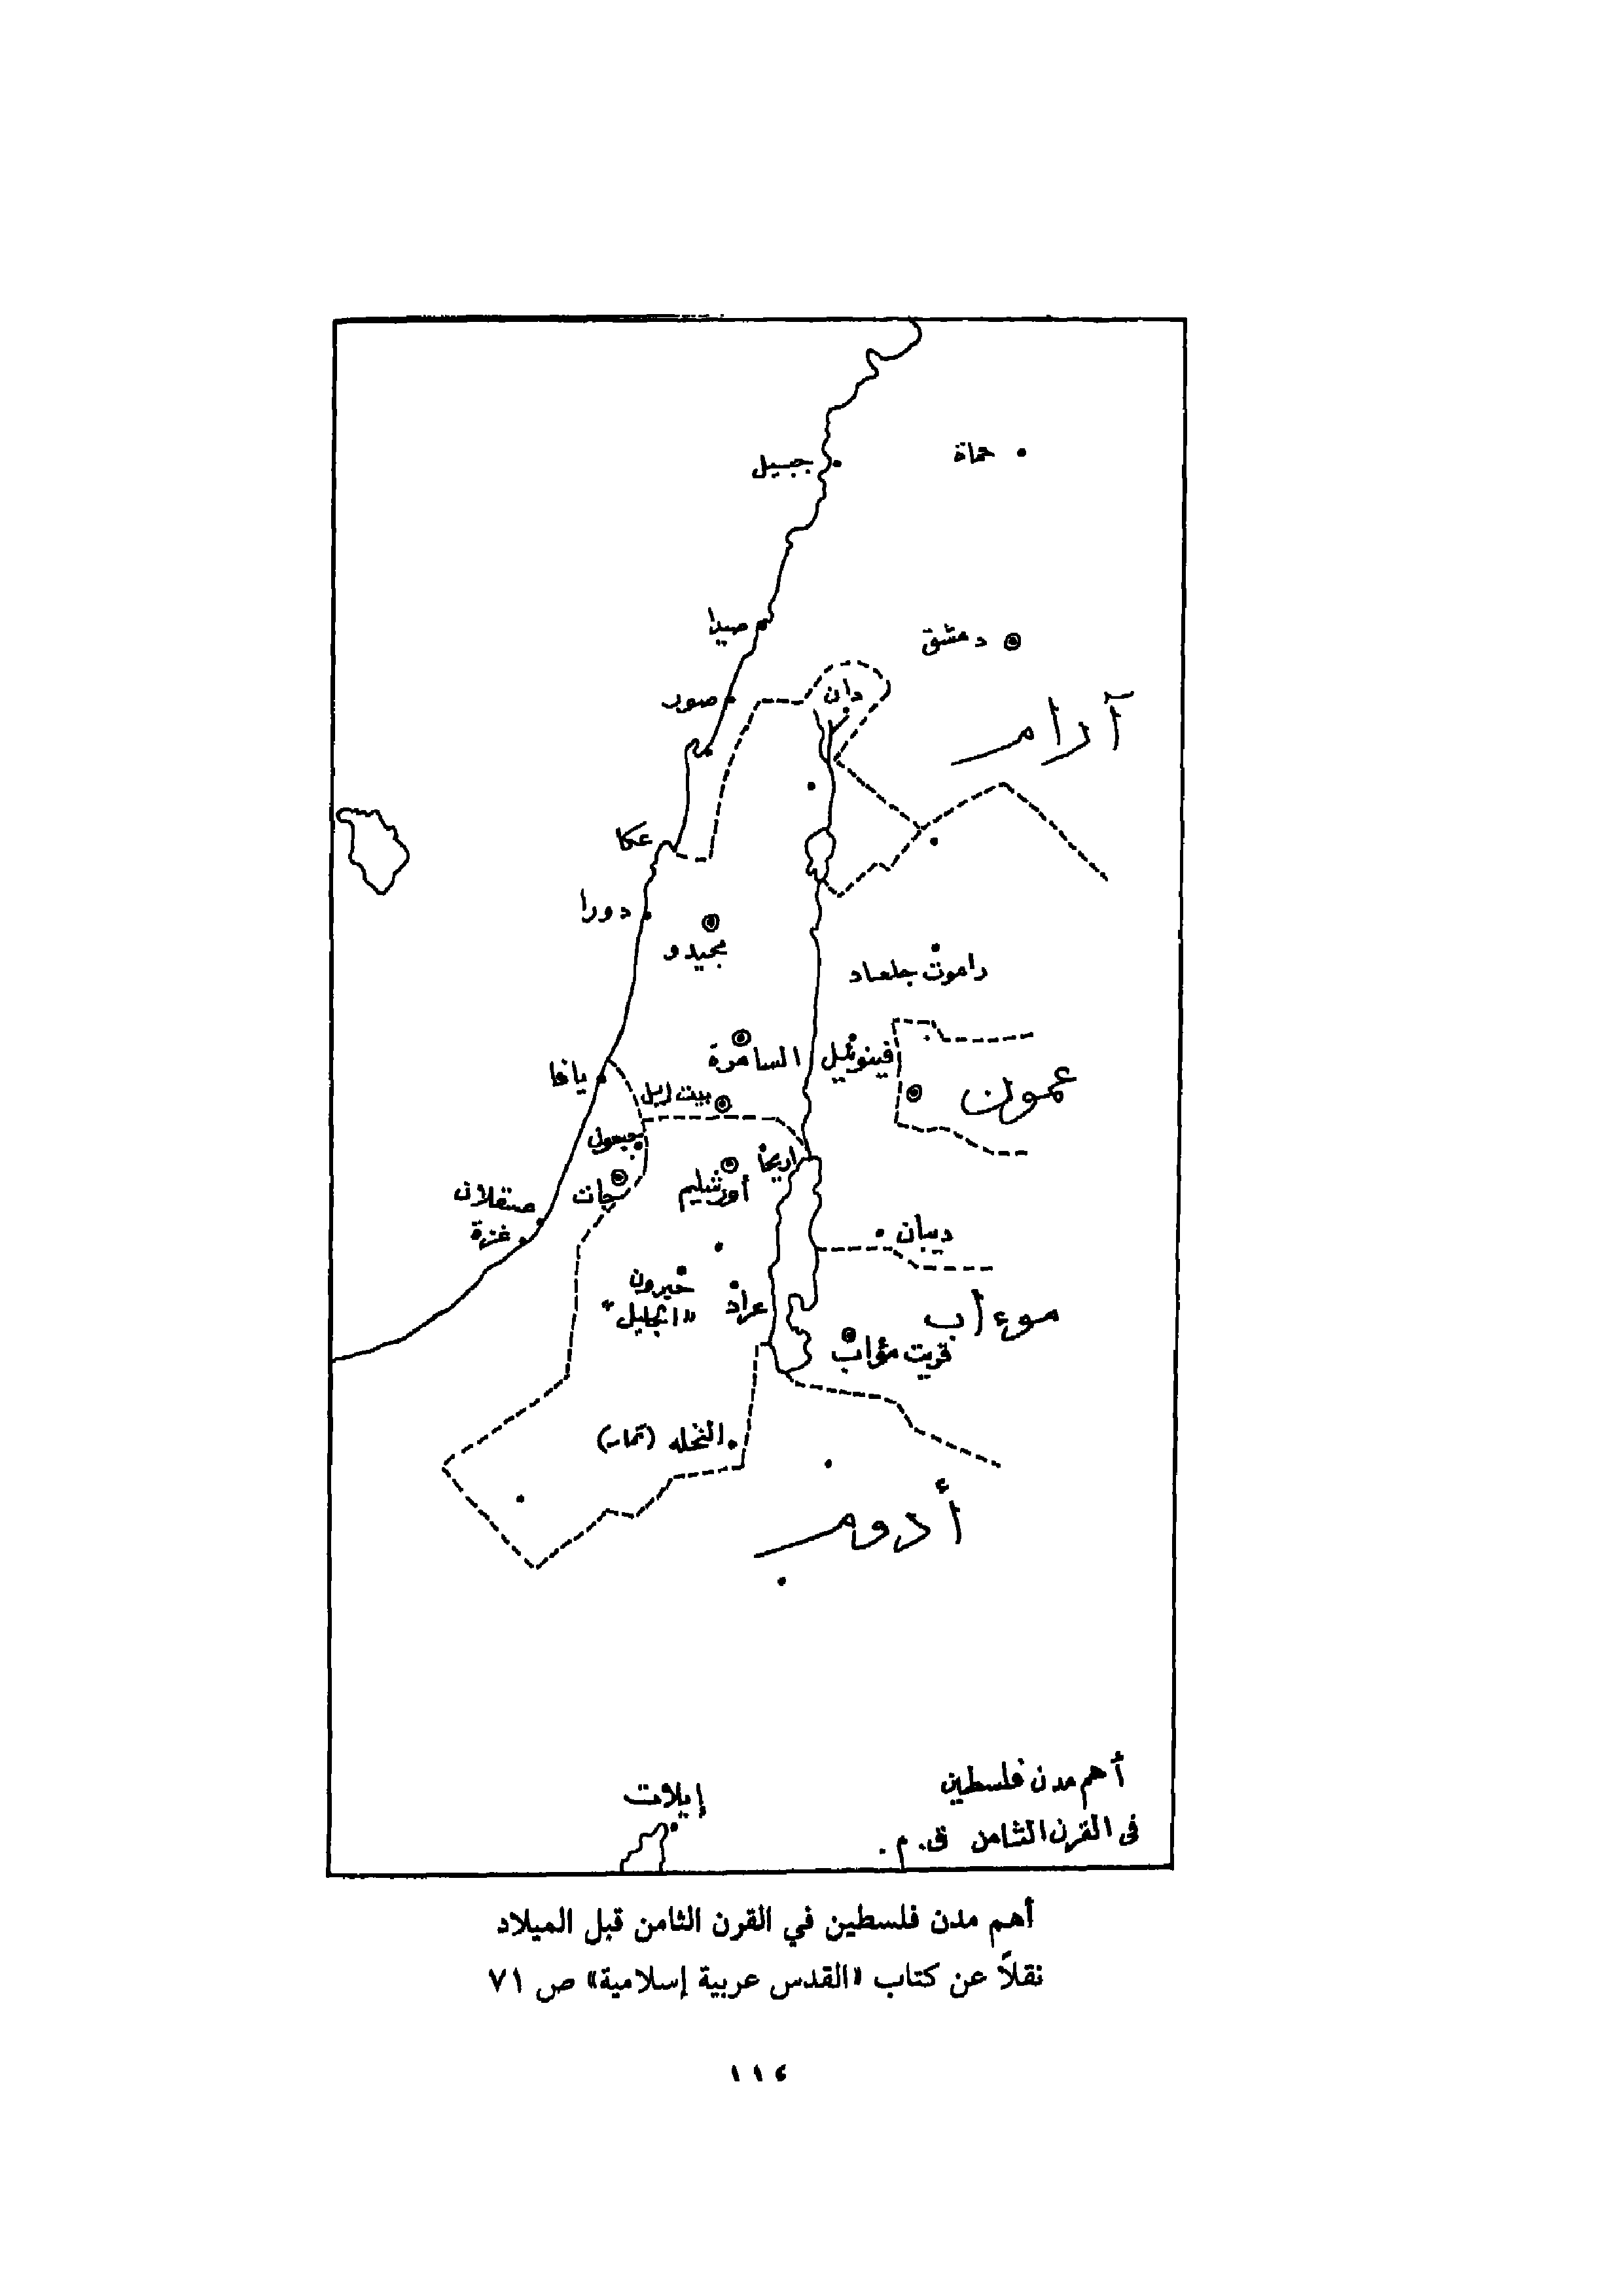 جبيل
حماة
صيدا
دمشق
صور
دان
آرام
عكا
دورا
مجيدو
راموت جلعاد
السامرة
فينوئيل
يافا
بيت إيل
عمون
أريحا
أورشليم
جات
غزة
ديبان
حبرون
"الخليل"
عراد
موءاب
قريت مؤاب
النخله
أدوم
إيلات
أهم مدن فلسطين
فى القرن الثامن ق. م.
أهم مدن فلسطين في القرن الثامن قبل الميلاد
نقلاً عن كتاب «القدس عربية إسلامية» ص ٧١
١١٤